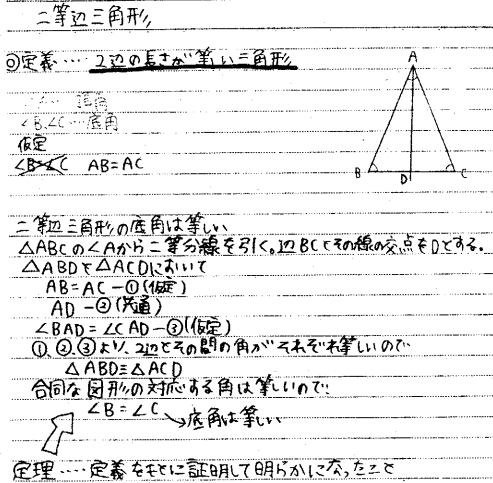 二等辺三角形
◎定義‥‥2辺の長さが等しい三角形
∠B,∠C…底角
仮定
∠B=∠C AB=AC
A
B D C
二等辺三角形の底角は等しい
△ABCの∠Aから二等分線を引く。辺BCとその線の交点をDとする。
△ABDと△ACDにおいて
AB=AC-①(仮定)
AD-②(共通)
∠BAD=∠CAD-③(仮定)
①,②,③より,2辺とその間の角がそれぞれ等しいので
△ABD≡△ACD
合同な図形の対応する角は等しいので
∠B=∠C
底角は等しい
定理‥‥定義をもとに証明して明らかになったこと